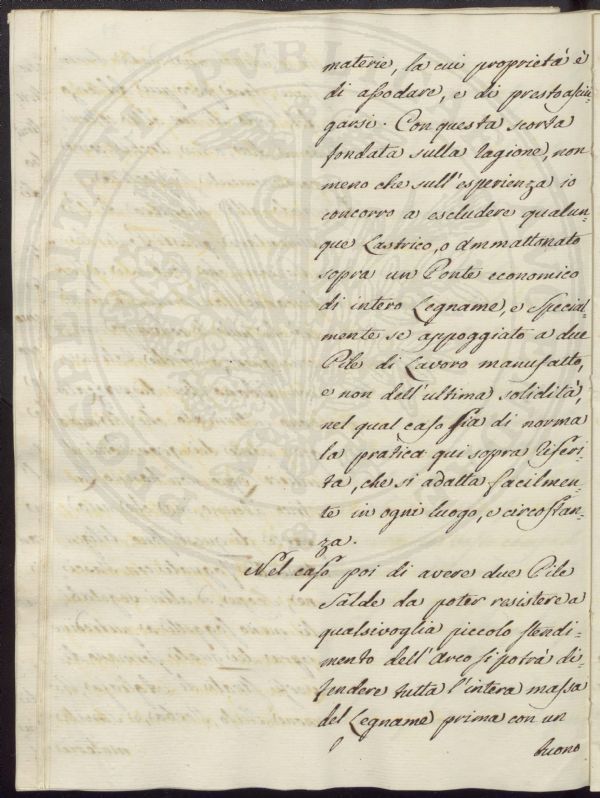 materie, la cui proprietà è
di assodare, e di presto asciu-
garsi. Con questa scorta
fondata sulla ragione, non
meno che sull'esperienza io
concorro a escludere qualun-
que Lastrico, o Ammattonato
sopra un Ponte economico
di intero Legname, e special-
mente se appoggiato a due
Pile di Lavoro manufatto,
e non dell'ultima solidità,
nel qual caso sia di norma
la pratica qui sopra riferi-
ta, che si adatta facilmen-
te in ogni luogo, e circostan-
za.
Nel caso poi di avere due Pile
Salde da poter resistere a
qualsivoglia piccolo stendi-
mento dell'Arco si potrà di-
fendere tutta l'intera massa
del Legname prima con un
buono